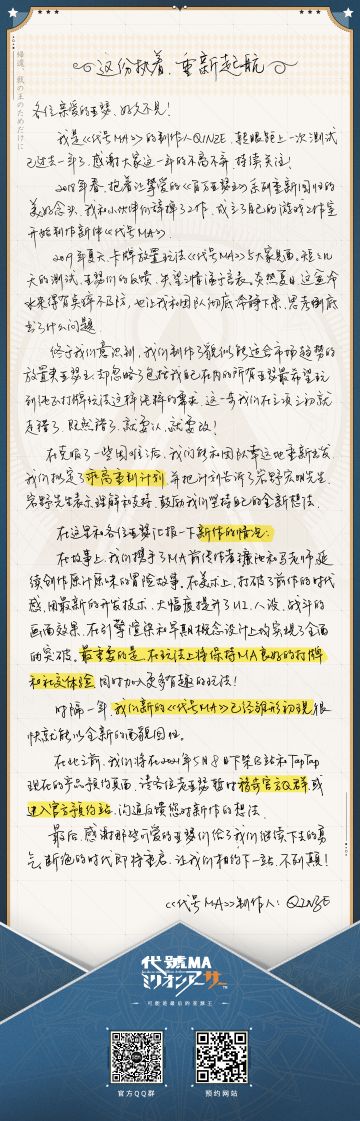 帰還、我の王のためだけに
这份执着,重新起航
各位亲爱的亚瑟,好久不见!
我是《代号MA》的制作人QINZE,转眼距上一次测试
已过去一年了,感谢大家这一年的不离不弃,持续关注!
2018年春,抱着让挚爱的《百万亚瑟王》系列重新回归的
美好念头,我和小伙伴们辞掉了工作,成立了自己的游戏工作室
开始制作新作《代号MA》。
2019年夏天,卡牌放置玩法《代号MA》与大家见面,短短几
天的测试,亚瑟们的反馈,失望之情溢于言表。炎热夏日,这盆冷
水来得有些猝不及防,也让我和团队彻底冷静下来,思考到底
出了什么问题。
终于我们意识到,我们制作了貌似能适合市场趋势的
放置类亚瑟王,却忽略了包括我自己在内的所有亚瑟最希望玩
到纯正打牌玩法这样纯粹的需求。这一步我们在立项之初就
走错了,既然错了,就要认,就要改!
在克服了一些困难之后,我们能和团队幸运地重新出发
我们拟定了乖离重制计划,并把计划告诉了岩野宏明先生,
岩野先生表示理解和支持,鼓励我们坚持自己的全新想法。
在这里和各位亚瑟汇报一下新作的情况:
在故事上,我们携手了MA前传作者镰池和马老师,延
续创作原汁原味的冒险故事。在美术上,打破了前作的时代
感,用最新的开发技术,大幅度提升了UI、人设、战斗的
画面效果,在引擎渲染和早期概念设计上均实现了全面
的突破。最重要的是,在玩法上将保持MA良好的打牌
和社交体验,同时加入更多有趣的玩法!
时隔一年,我们新的《代号MA》已经雏形初现,很
快就能以全新的面貌回归。
在此之前,我们将在2021年5月8日下架B站和TapTap
现在的产品预约页面,请各位老亚瑟暂时移步官方Q群,或
进入官方预约站,沟通反馈您对新作的想法。
最后,感谢那些可爱的亚瑟们给了我们继续下去的勇
气,断绝的时代即将重启,让我们相约下一站,不列颠!
《代号MA》制作人:QINZE
代號MA
ミリオンアーサー
可能是最后的亚瑟王
官方QQ群
预约网站